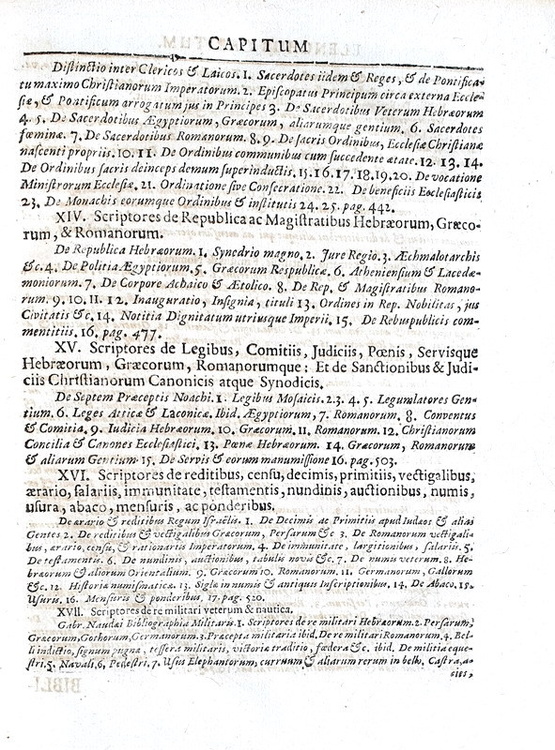 CAPITUM
Distinctio inter Clericos & Laicos. 1. Sacerdotes iidem & Reges, & de Pontifica-
tu maximo Christianorum Imperatorum. 2. Episcopatus Principum circa externa Eccle-
siæ, & Pontificum arrogatum jus in Principes 3. De Sacerdotibus Veterum Hebræorum
4. 5. De Sacerdotibus Ægyptiorum, Græcorum, aliarumque gentium. 6. Sacerdotes
fœminæ. 7. De Sacerdotibus Romanorum. 8. 9. De sacris Ordinibus, Ecclesiæ Christianæ
nascenti propriis. 10. 11. De Ordinibus communibus cum succedente ætate. 12. 13. 14.
De Ordinibus sacris deinceps demum superinductis. 15. 16. 17. 18. 19. 20. De vocatione
Ministrorum Ecclesiæ. 21. Ordinatione sive Consecratione. 22. De beneficiis Ecclesiasticis
23. De Monachis eorumque Ordinibus & institutis 24. 25. pag. 442.
XIV. Scriptores de Republica ac Magistratibus Hebræorum, Græco-
rum, & Romanorum.
De Republica Hebræorum. 1. Synedrio magno. 2. Jure Regio. 3. Æchmalotarchis
&c. 4. De Politia Ægyptiorum. 5. Græcorum Respublicæ. 6. Atheniensium & Lacedæ-
moniorum. 7. De Corpore Achaico & Ætolico. 8. De Rep. & Magistratibus Romano-
rum. 9. 10. 11. 12. Inauguratio, Insignia, tituli 13. Ordines in Rep. Nobilitas, jus
Civitatis &c. 14. Notitia Dignitatum utriusque Imperii. 15. De Rebuspublicis com-
mentitiis. 16. pag. 477.
XV. Scriptores de Legibus, Comitiis, Judiciis, Pœnis, Servisque
Hebræorum, Græcorum, Romanorumque: Et de Sanctionibus & Judi-
ciis Christianorum Canonicis atque Synodicis.
De Septem Præceptis Noachi. 1. Legibus Mosaicis. 2. 3. 4. 5. Legumlatores Gen-
tium. 6. Leges Atticæ & Laconicæ. Ibid. Ægyptiorum, 7. Romanorum. 8. Conventus
& Comitia. 9. Iudicia Hebræorum. 10. Græcorum. 11. Romanorum. 12. Christianorum
Concilia & Canones Ecclesiastici, 13. Pœnæ Hebræorum. 14. Græcorum, Romanorum
& aliarum Gentium. 15. De Servis & eorum manumissione 16. pag. 503.
XVI. Scriptores de reditibus, censu, decimis, primitiis, vectigalibus,
ærario, salariis, immunitate, testamentis, nundinis, auctionibus, numis,
usura, abaco, mensuris, ac ponderibus.
De ærario & reditibus Regum Israëlis. 1. De Decimis ac Primitiis apud Iudæos & alias
Gentes 2. De reditibus & vectigalibus Græcorum, Persarum &c 3. De Romanorum vectigali-
bus, ærario, censu, & rationariis Imperatorum. 4. De immunitate, largitionibus, salariis. 5.
De testamentis. 6. De nundinis, auctionibus, tabulis novis &c. 7. De numis veterum. 8. He-
bræorum & aliorum Orientalium. 9. Græcorum 10. Romanorum. 11. Germanorum, Gallorum
&c. 12. Historia numismatica. 13. Siglæ in numis & antiquis Inscriptionibus. 14. De Abaco. 15.
Usuris. 16. Mensuris & ponderibus, 17. pag. 520.
XVII. Scriptores de re militari veterum & nautica.
Gabr. Naudæi Bibliographia Militaris. 1. Scriptores de re militari Hebræorum. 2. Persarum,
Græcorum, Gothorum, Germanorum. 3. Præcepta militaria ibid. De re militari Romanorum. 4. Bel-
li indictio, signum pugnæ, tessera militaris, victoriæ traditio, fœdera &c. ibid. De militia eque-
stri. 5. Navali. 6. Pedestri. 7. Usus Elephantorum, curruum & aliarum rerum in bello, Castra, a-
cies,